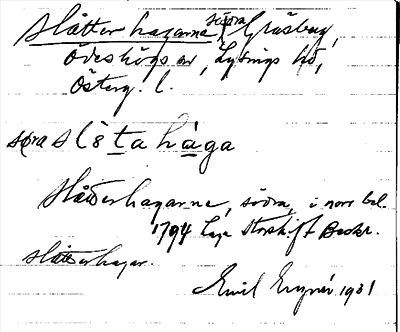 Slåtterhagarne, södra, Gräsberg,
Ödeshögs sn, Lysings hd,
Österg. l.
sɷra slɷ̀ta hága
Slåtterhagarne, södra, i norr bel.
1794 Laga Storskift Beskr.
slåtterhagar.
Emil 1931